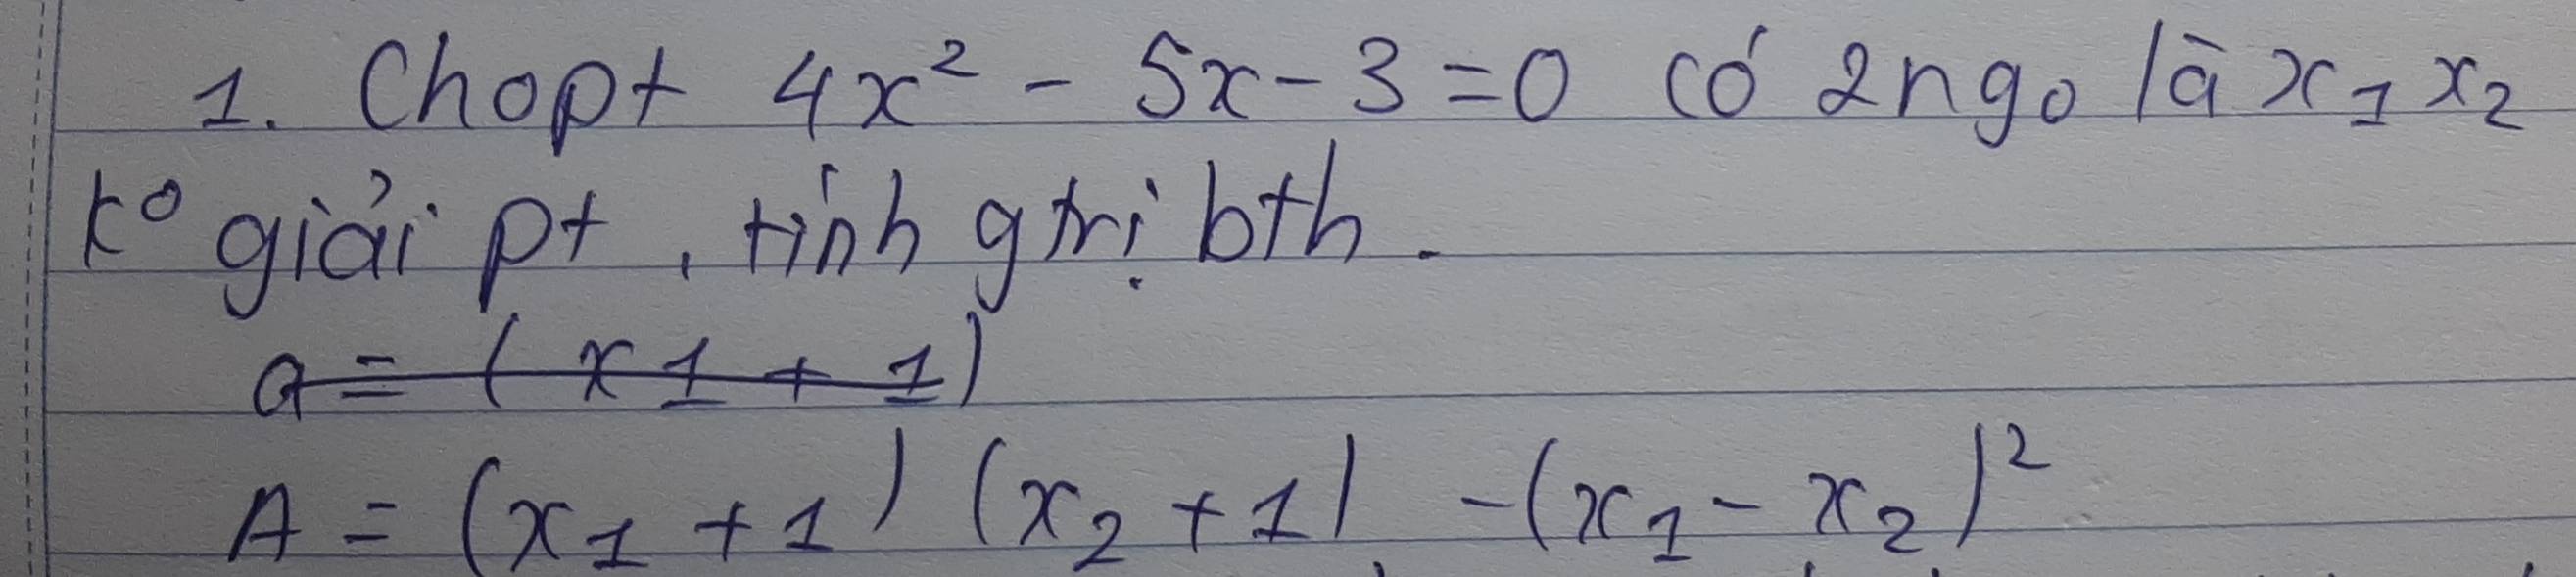 1. Cho pt 4x² - 5x - 3 = 0 có 2 ngo là x₁ x₂
kº giải pt, tính gtrị bth.
a = (x1 + 1)
A = (x₁ + 1) (x₂ + 1) - (x₁ - x₂)²